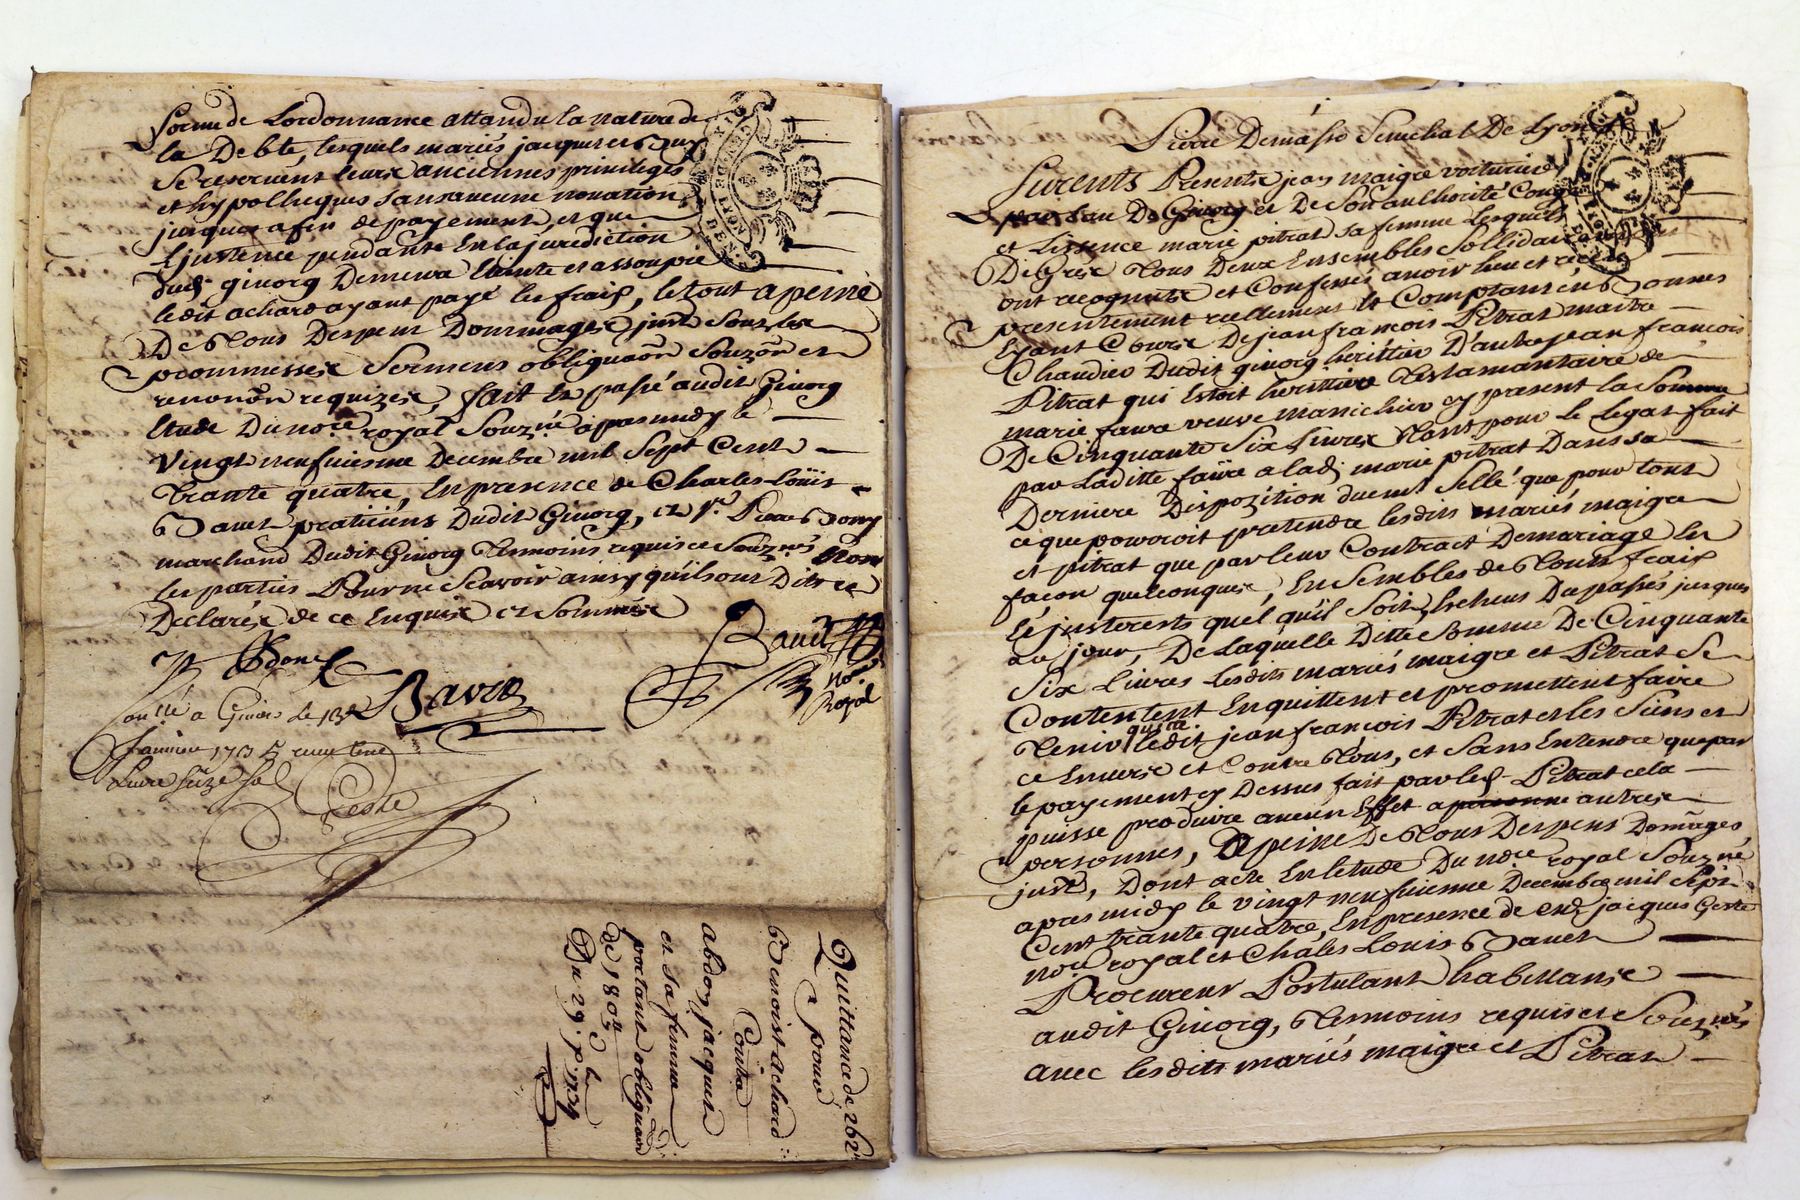 forme de Lordonnance attandu la nature de
la Debte, lesquels mariés jacques et
Se reservent leurs anciennes privileges
et hypotheques sans aucune novation
jusques a fin de payement, et que
Ljnstence pendante En la jurediction
dud. givorg Demeure Eteinte et assoupie
ledit achard ayant payé les frais, le tout a peine
De Tous Despens Dommages jnts Souz les
promesses Sermens obligaõn Souzõn et
renonõn requizes, fait et passé audit Givorg
Etude Du no.re royal Souz.né apres midy le
Vingt neufuiesme Decembre mil Sept Cent
Trante quatre, En presence de Charles Loüis
Bavet praticiens Dudit Givorg, et Sr. Pierre
marchand Dudit Givorg Tesmoins requis et Souz.nés Non
les parties Pour ne Scavoir ainsy quils ont Dit et
Declarés de ce Enquise et Sommés
Bavet
no.re
Royal
a Givors Le
Janvier 1735
Livre Seize Sol
Geste
Quittance de 262
pour
Benoist achard
Contre
jacques
et sa femme
portant obligaõn
de 180
Du 29. xbre 1734
1
Pierre Demasso Senechal De Lyon
Furents Presents jean maigre voiturier
par Eau De Givorg et De Son authorité Congé
et Lissence marie pitrat sa femme Lesquels
De Grés Tous Deux Ensembles Sollidairement
ont recognuts et Confessés avoir heu et receu
presentement reellement et Comptant en Bonnes
Eyant Cours De jean francois Pitrat maitre
Chandier Dudit givorg heritier D'autre jean francois
Pitrat qui Estoit heritiere Testamantaire de
marie faure veuve manichier cy present la Somme
De Cinquante Six Livres Tant pour le legat fait
par Laditte faure a lad. marie pitrat Dans sa
Derniere Dispozition duemt. Sellé que pour tout
ce que pouroroit pretendre lesdits mariés maigre
et pitrat que par leur Contract De mariage En
facon quelconques, Ensembles de Touts frais
Et jnterests quel qu'il Soit, Escheus Du passés jusques
au jour, De Laquelle Ditte Somme De Cinquante
Six Livres Lesdits mariés maigre et Pitrat Se
Contentent En quittent et promettent faire
Tenir quitte ledit jean françois Pitrat et les Siens et
ce Envers et Contre Tous, et Sans Entendre que par
le payement cy Dessus fait par led. Pitrat cela
puisse produire aucun Effet a autres
personnes, A peine De Tous Despens Domages
jnts, Dont acte En letude Du no.re royal Souz.né
apres midy le vingt neufuieme Decembre mil Sept
Cent trante quatre, En presence de me jacques Geste
no.re royal et Chales Louis Bavet
Procureur Postulant habittants
audit Givorg, Tesmoins requis et Souz.nés
avec lesdits mariés maigre et Pitrat